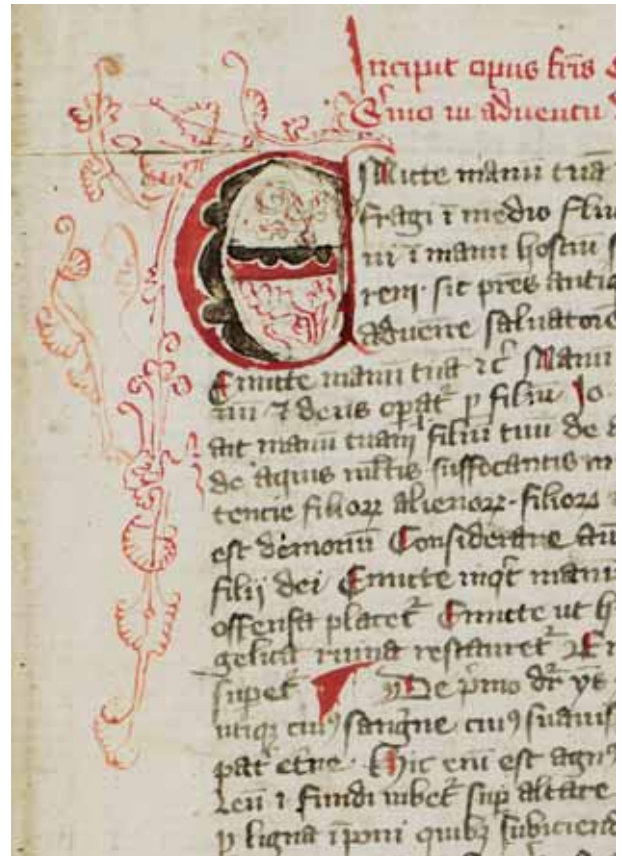 Incipit opus fr̄is
Ẽmo in adventu
Emitte manū tuā
fragi ī medio fluv
ni ī manu hostiū
reni · sic pr̄es antiq
advenire salvatorē
Emitte manū tuā ⁊c̃ Manū
⁊ deus opat᷑ p filiū Jo
ait manū tuam filiū tuū de
de aquis multis suffocantis
tencie filioꝝ alienoꝝ · filioꝝ
est demoniū Considerare aūt
filij dei Emitte inqt manū
offensa placet᷑ Emitte ut h
gelica ruina restauret᷑ Em
supet᷑ De pͥmo dr̄
utiqꝫ cuiꝰ sangͥne cuiꝰ suavis
pat᷑ etne · Hic enī est agnꝰ
ı fundi iubet᷑ sup altare
p ligna īponi quibꝫ subiciend